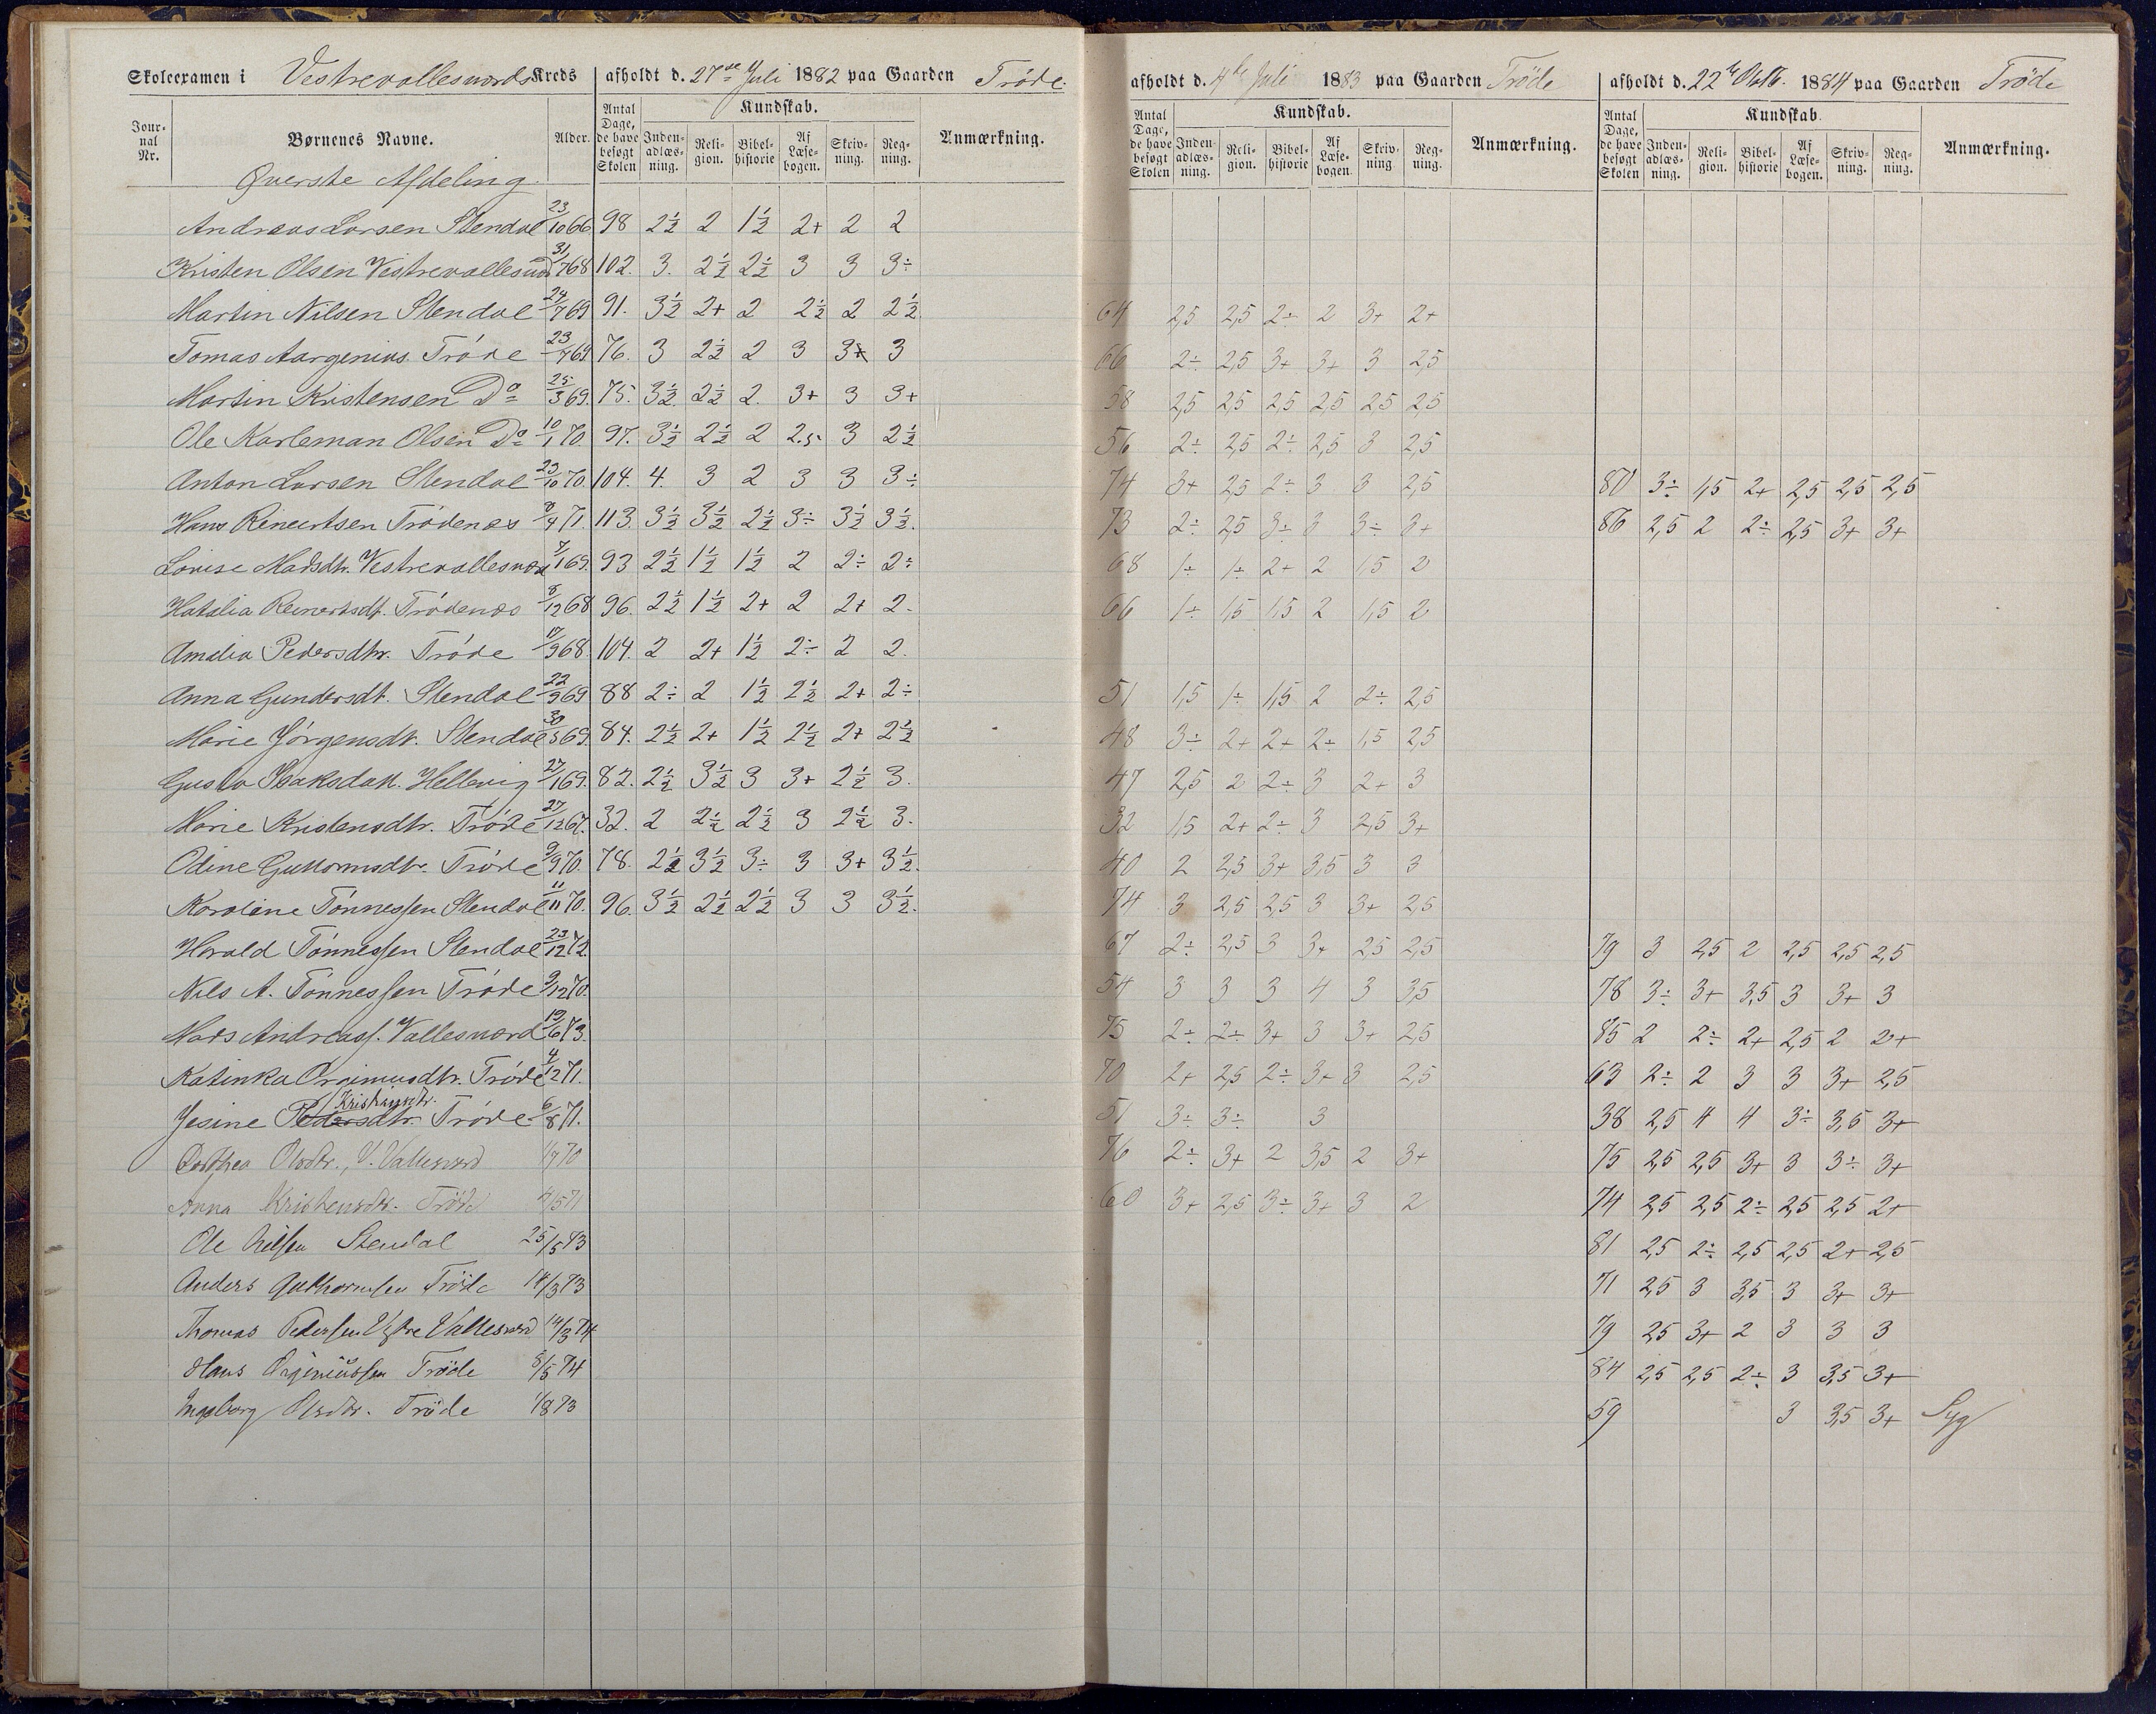 Skoleexamen i Vestrevallesværds Kreds afholdt d. 27de Juli 1882 paa Gaarden Tröde. afholdt d. 4de Juli 1883 paa Gaarden Tröde afholdt d. 22de Oktb. 1884 paa Gaarden Tröde
Jour- nal Nr. Børnenes Navne. Alder. Antal Dage, de have besøgt Skolen Kundskab. Inden- adlæs- ning. Reli- gion. Bibel- historie Af Læse- bogen. Skriv- ning. Reg- ning. Anmærkning. Antal Dage, de have besøgt Skolen Kundskab. Inden- adlæs- ning. Reli- gion. Bibel- historie Af Læse- bogen. Skriv- ning. Reg- ning. Anmærkning. Antal Dage, de have besøgt Skolen Kundskab. Inden- adlæs- ning. Reli- gion. Bibel- historie Af Læse- bogen. Skriv- ning. Reg- ning. Anmærkning.
Øverste Afdeling.
Andreas Larsen Stendal 23/10 66 98 2½ 2 1½ 2+ 2 2
Kristen Olsen Vestrevallesværd 31/7 68 102. 3. 2½ 2½ 3 3 3÷
Martin Nilsen Stendal 24/7 69 91. 3½ 2+ 2 2½ 2 2½. 64 2,5 2,5 2÷ 2 3+ 2+
Tomas Aargenius. Tróde 23/7 69 76. 3 2½ 2 3 3+ 3 66 2÷ 2,5 3+ 3+ 3 2,5
Martin Kristensen Do 25/3 69. 75. 3½. 2½ 2. 3+ 3 3+ 58 2,5 2,5 2,5 2,5 2,5 2,5
Ole Karleman Olsen Do 10/1 70. 97. 3½ 2½ 2 2.5 3 2½ 56 2÷ 2,5 2÷ 2,5 3 2,5
Anton Larsen Stendal 23/10 70. 104. 4. 3 2 3 3 3÷ 74 3+ 2,5 2÷ 3 3 2,5 80 3÷ 1,5 2+ 2,5 2,5 2,5
Hans Reineertsen Trödenes 8/4 71. 113. 3½ 3½ 2½ 3÷ 3½ 3½. 73 2÷ 2,5 3÷ 3 3÷ 3+ 86 2,5 2 2÷ 2,5 3+ 3+
Lovise Madsdtr. Vestrevallesværd 7/1 69. 93 2½ 1½ 1½ 2 2÷ 2÷ 68 1÷ 1÷ 2+ 2 1,5 2
Hatalia Reinertsdt. Trödenes 8/12 68 96. 2½ 1½ 2+ 2 2+ 2. 66 1÷ 1,5 1,5 2 1,5 2
Amalia Pedersdtr. Tröde 17/9 68. 104. 2 2+ 1½ 2÷ 2 2.
Anna Gundersdt. Stendal 22/9 69 88 2÷ 2 1½ 2½ 2+ 2÷ 51 1,5 1÷ 1,5 2 2÷ 2,5
Marie Jörgensdt. Stendal 30/5 69. 84. 2½ 2+ 1½ 2½ 2+ 2½ 48 3÷ 2+ 2+ 2÷ 1,5 2,5
Gusta Isaksdatt. Hellevig 27/1 69. 82. 2½ 3½ 3 3+ 2½ 3. 47 2,5 2 2÷ 3 2+ 3
Marie Kristensdtr. Tröde 27/12 67. 32. 2 2½ 2½ 3 2½ 3. 32 1,5 2+ 2÷ 3 2,5 3+
Odine Guttormsdtr. Tröde 9/9 70. 78. 2½ 3½ 3÷ 3 3+ 3½. 40 2 2,5 3+ 3,5 3 3
Karoline Tönnessen Stendal 11/11 70. 96. 3½ 2½ 2½ 3 3 3½. 74 3 2,5 2,5 3 3+ 2,5
Harald Tönnessen Stendal 23/12 72. 67 2÷ 2,5 3 3+ 2,5 2,5 79 3 2,5 2 2,5 2,5 2,5
Nils A. Tönnessen Tröde 9/12 70. 54 3 3 3 4 3 3,5 78 3÷ 3+ 3,5 3 3+ 3
Mads Andreass. Vallesværd 19/6 73. 75 2÷ 2÷ 3+ 3 3+ 2,5 85 2 2÷ 2+ 2,5 2 2+
Katinka Orginiusdtr. Tröde 4/12 71. 70 2+ 2,5 2÷ 3+ 3 2,5 63 2÷ 2 3 3 3+ 2,5
Kristiansdtr.
Jesine Pedersdtr. Tröde 6/8 71. 51 3÷ 3÷ 3 38 2,5 4 4 3÷ 3,5 3+
Dorthea Olsdtr., V. Vallesværd 1/7 70 76 2÷ 3+ 2 3,5 2 3+ 75 2,5 2,5 3+ 3 3÷ 3+
Anna Kristensdtr. Tröde 4/5 71 60 3+ 2,5 3÷ 3+ 3 2 74 2,5 2,5 2÷ 2,5 2,5 2+
Ole Nilsen Stendal 25/5 73 81 2,5 2÷ 2,5 2,5 2+ 2,5
Anders Guthormsen Tröde 14/3 73 71 2,5 3 3,5 3 3+ 3+
Thomas Pedersen Vestre Vallesværd 14/3 74 79 2,5 3+ 2 3 3 3
Hans Orginiussen Tröde 8/5 74 84 2,5 2,5 2÷ 3 3,5 3+
Ingeborg Olsdtr. Tröde 1/8 73 59 3 3,5 3+ Syg